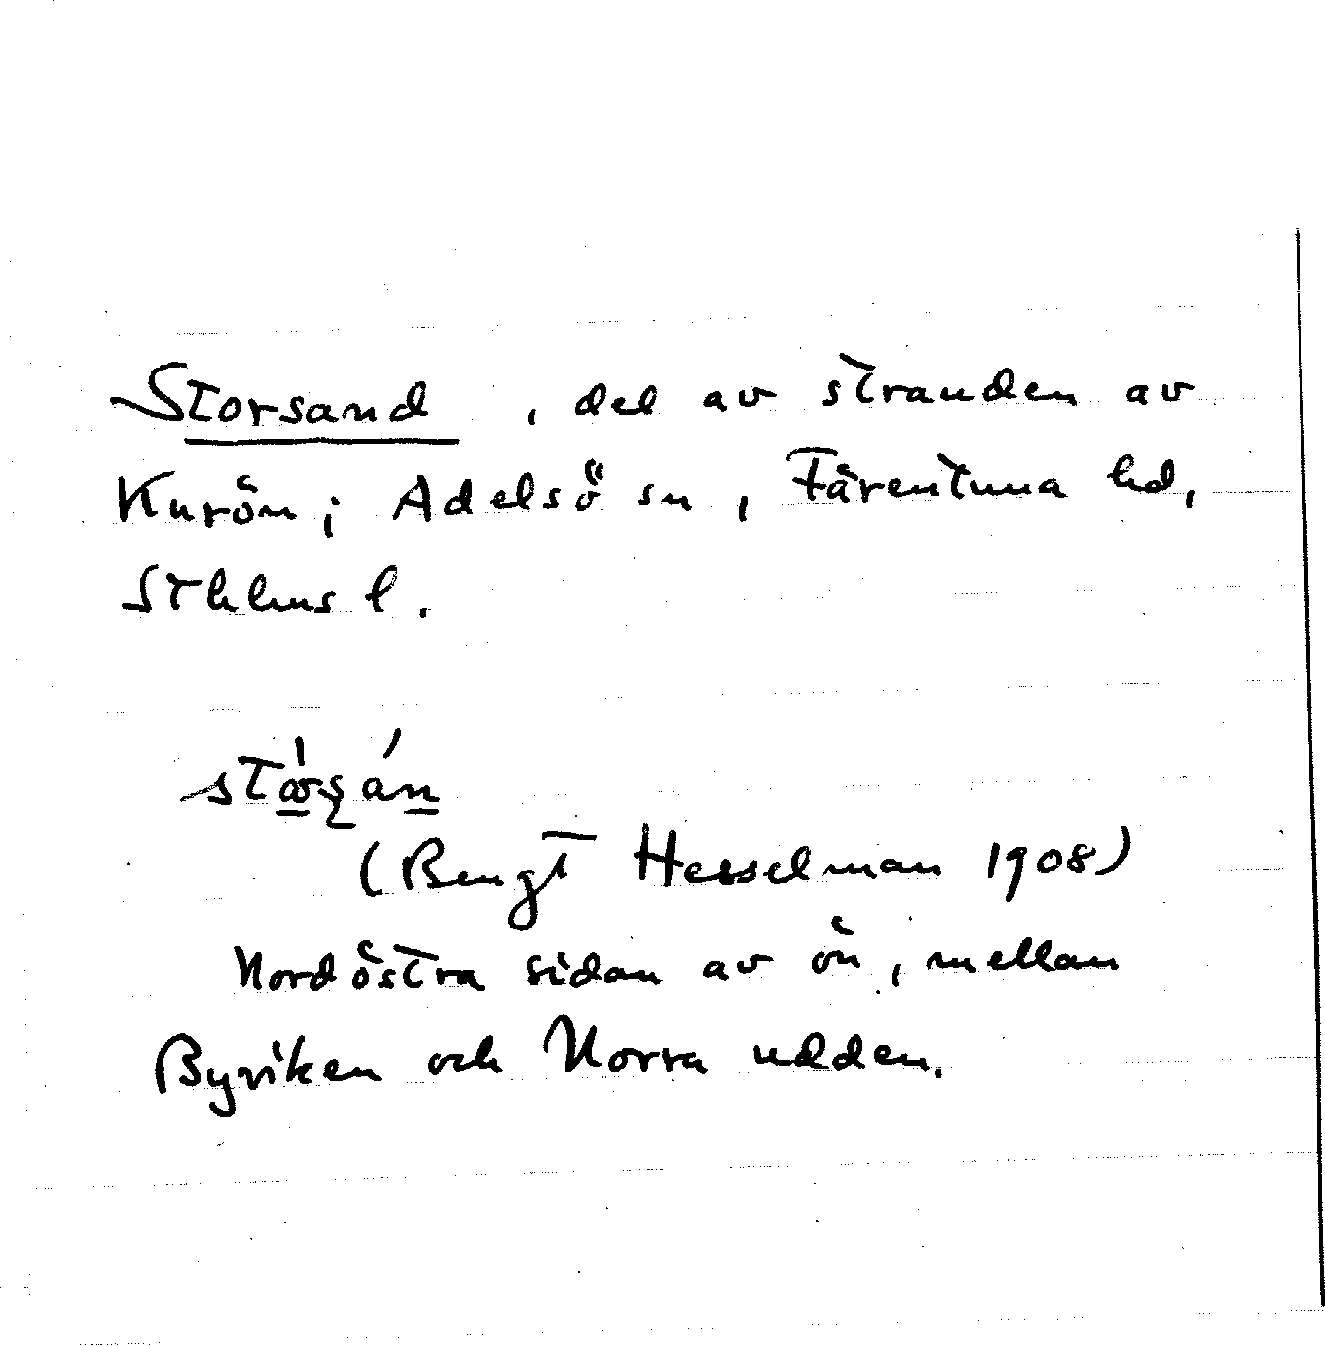 Storsand, del av stranden av
Kurön; Adelsö sn, Färentuna hd,
Sthlms l.
(Bengt Hesselman 1908)
Nordöstra sidan av ön, mellan
Byviken och Norra udden.